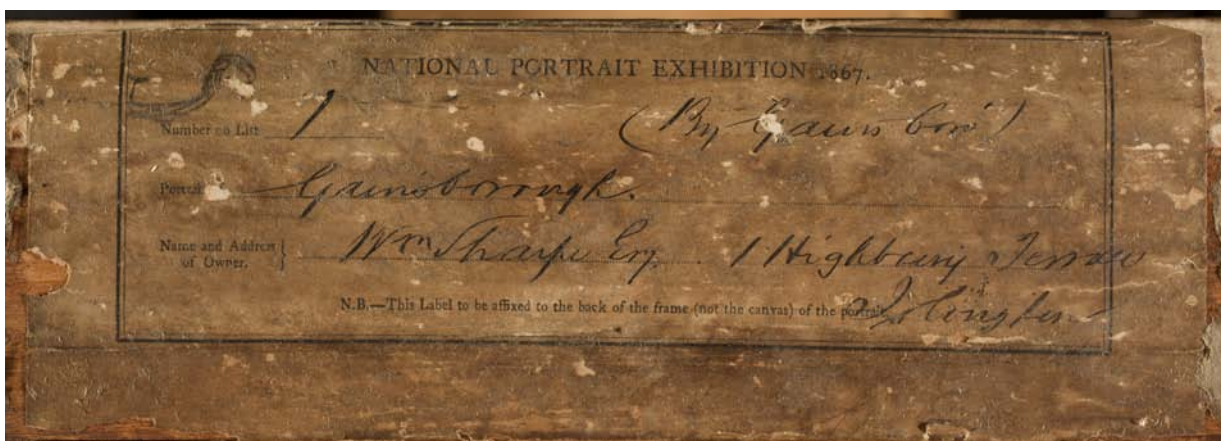 NATIONAL PORTRAIT EXHIBITION 1867.
Number on List 1 (By Gainsboro')
Portrait Gainsborough.
Name and Address of Owner. } Wm Sharpe Esq. 1 Highbury Terrace
Islington
N.B.—This Label to be affixed to the back of the frame (not the canvas) of the portrait.